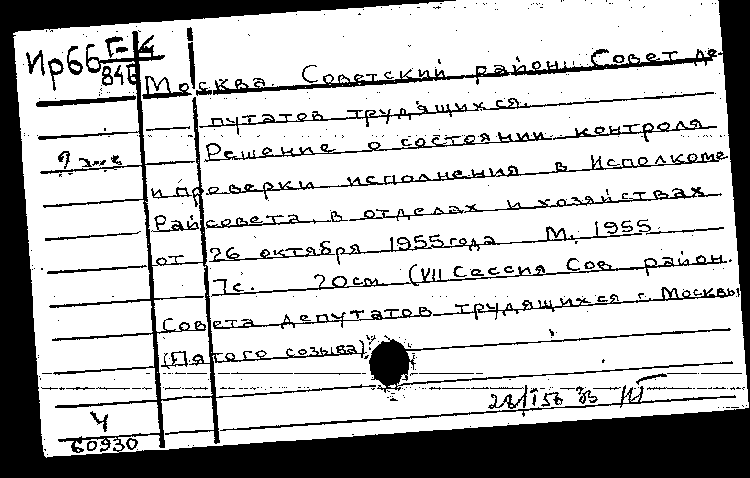 Ир66 Г-4
84Е
Москва. Советский район. Совет де-
путатов трудящихся.
9 экз
Решение о состоянии контроля
и проверки исполнения в Исполкоме
Райсовета, в отделах и хозяйствах
от 26 октября 1955 года М. 1955.
7с. 20см. (VII Сессия Сов. район.
Совета депутатов трудящихся г. Москвы
(Пятого созыва)
28/I 56
Ч
60930